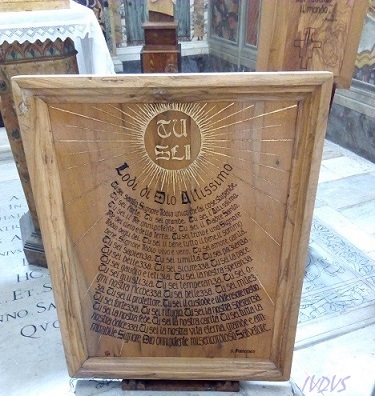 TU
SEI
Lodi di Dio Altissimo
Tu sei Santo Signore Iddio unico che fai cose stupende.
Tu sei forte. Tu sei grande. Tu sei l'Altissimo.
Tu sei l'Onnipotente. Tu sei il Padre Santo,
Re del cielo e della terra. Tu sei trino e uno Signore
Tu sei il bene tutto il bene il Sommo
bene Signore Iddio vivo e vero. Tu sei amore, carità.
Tu sei sapienza. Tu sei umiltà. Tu sei pazienza.
Tu sei bellezza. Tu sei sicurezza. Tu sei la pace
Tu sei gaudio e letizia. Tu sei la nostra speranza
Tu sei giustizia. Tu sei temperanza. Tu sei o-
gni nostra ricchezza. Tu sei bellezza. Tu sei mitez-
za. Tu sei il protettore. Tu sei il custode e il difensore nostro
Tu sei fortezza. Tu sei rifugio. Tu sei la nostra speranza
Tu sei la nostra fede. Tu sei la nostra carità. Tu sei tutta la
nostra dolcezza. Tu sei la nostra vita eterna, grande e am-
mirabile Signore, Dio onnipotente misericordioso Salvatore.
S. Francesco
IVDVS